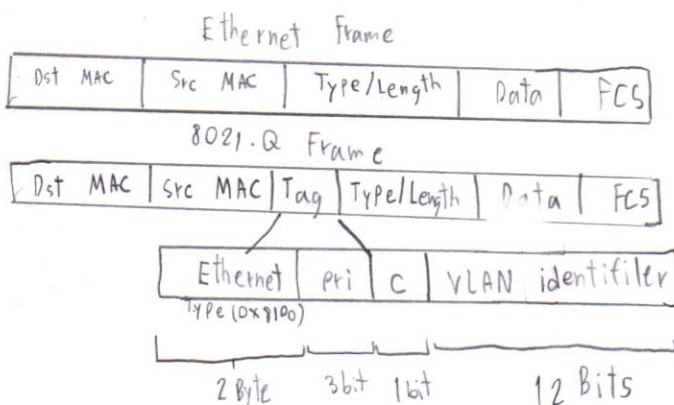 Ethernet Frame
Dst MAC Src MAC Type/Length Data FCS
8021.Q Frame
Dst MAC Src MAC Tag Type/Length Data FCS
Ethernet pri C VLAN identifiler
Type (0x8100)
2 Byte 3bit 1bit 12 Bits